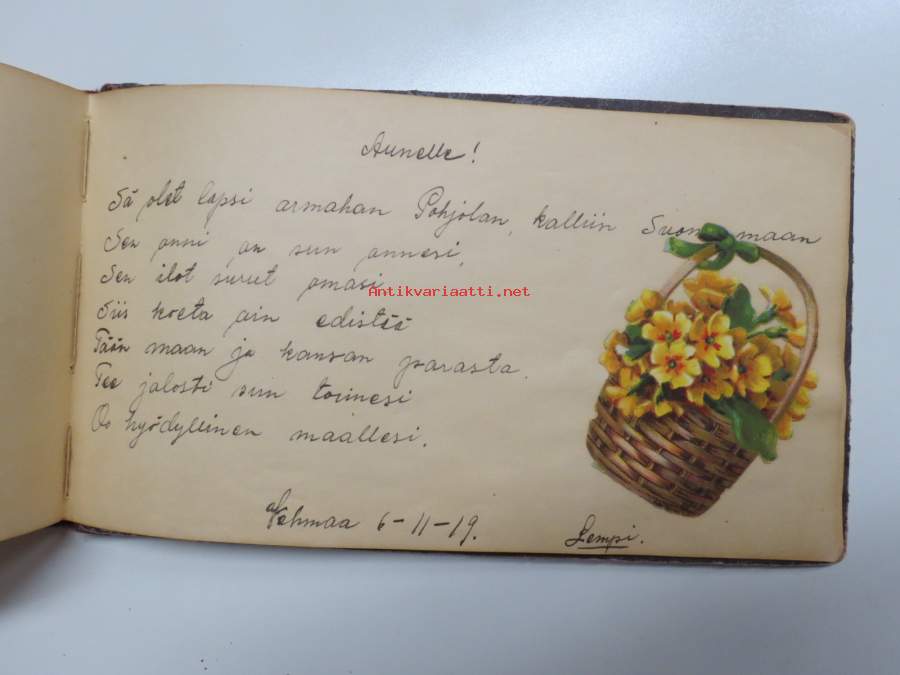 Aunelle!
Sä olet lapsi armahan Pohjolan, kalliin Suomenmaan
Sen onni on sun onnesi,
Sen ilot surut omasi
Antikvariaatti.net
Siis koeta ain edistää
Tään maan ja kansan parasta.
Tee jalosti sun toimesi
Oo hyödyllinen maallesi.
Vehmaa 6-11-19.
Lempi.